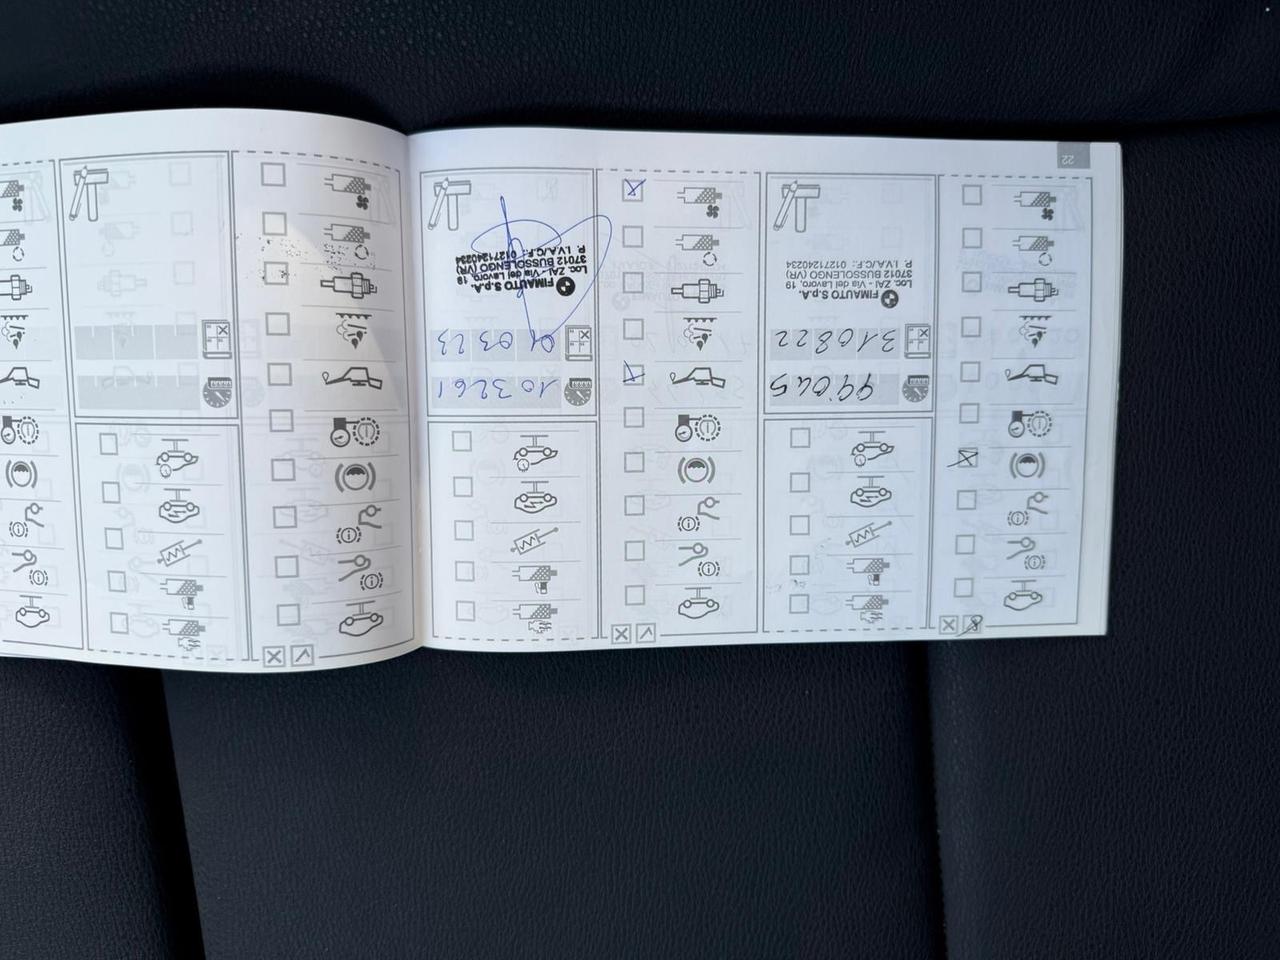 99045
310822
FIMAUTO S.p.A.
Loc. ZAI - Via del Lavoro, 19
37012 BUSSOLENGO (VR)
P. I.V.A./C.F.: 01271240234
103261
01 03 23
FIMAUTO S.p.A.
Loc. ZAI - Via del Lavoro, 19
37012 BUSSOLENGO (VR)
P. I.V.A./C.F.: 01271240234
22